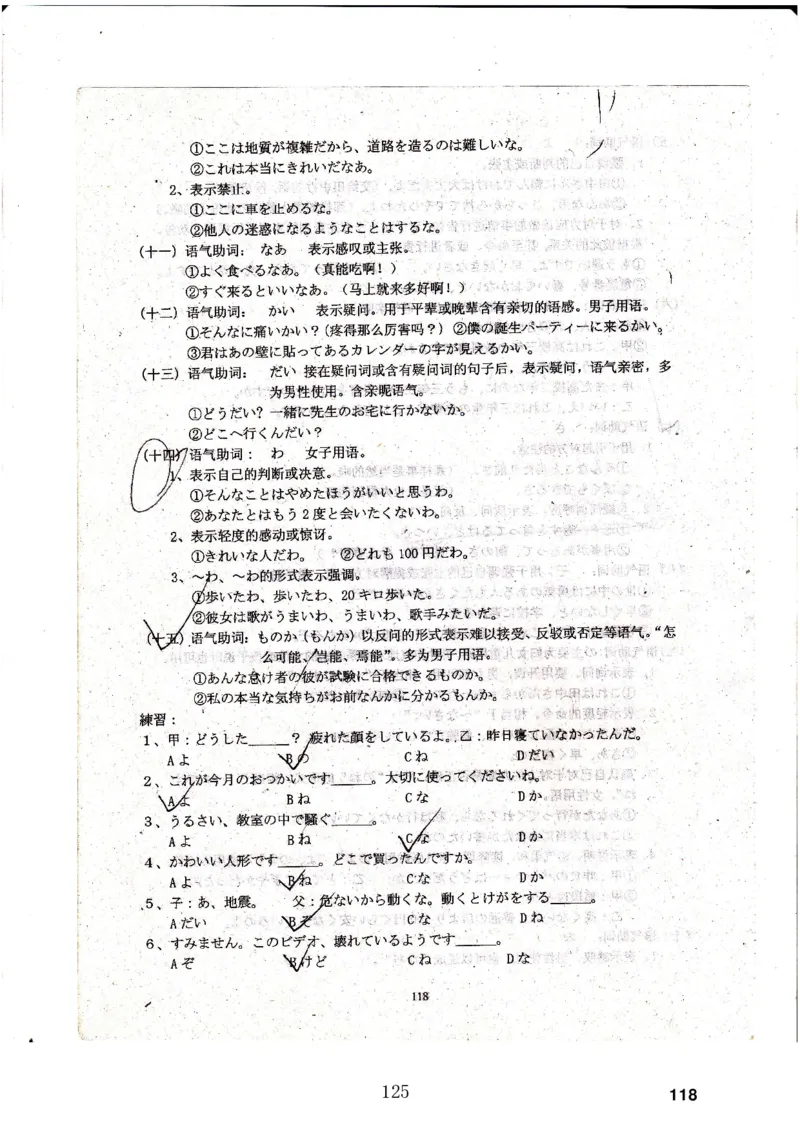 ①ここは地質が複雑だから、道路を造るのは難しいな。
②これは本当にきれいだなあ。
2、表示禁止。
①ここに車を止めるな。
②他人の迷惑になるようなことはするな。
(十一) 语气助词： なあ 表示感叹或主张。
①よく食べるなあ。(真能吃啊！)
②すぐ来るといいなあ。(马上就来多好啊！)
(十二) 语气助词： かい 表示疑问。用于平辈或晚辈含有亲切的语感。男子用语。
①そんなに痛いかい？(疼得那么厉害吗？) ②僕の誕生パーティーに来るかい。
③君はあの壁に貼ってあるカレンダーの字が見えるかい。
(十三) 语气助词： だい 接在疑问词或含有疑问词的句子后，表示疑问，语气亲密，多
为男性使用。含亲昵语气。
①どうだい？一緒に先生のお宅に行かないか。
②どこへ行くんだい？
(十四) 语气助词： わ 女子用语。
1、表示自己的判断或决意。
①そんなことはやめたほうがいいと思うわ。
②あなたとはもう2度と会いたくないわ。
2、表示轻度的感动或惊讶。
①きれいな人だわ。 ②どれも100円だわ。
3、～わ、～わ的形式表示强调。
①歩いたわ、歩いたわ、20キロ歩いた。
②彼女は歌がうまいわ、うまいわ、歌手みたいだ。
(十五) 语气助词：ものか(もんか)以反问的形式表示难以接受、反驳或否定等语气。“怎
么可能、岂能、焉能”。多为男子用语。
①あんな怠け者の彼が試験に合格できるものか。
②私の本当な気持ちがお前なんかに分かるもんか。
練習：
1、甲：どうした_____？疲れた顔をしているよ。乙：昨日寝ていなかったんだ。
Aよ Bの Cね Dだい
2、これが今月のおつかいです_____。大切に使ってくださいね。
Aよ Bね Cな Dか
3、うるさい、教室の中で騒ぐ_____。
Aよ Bね Cな Dか
4、かわいい人形です_____。どこで買ったんですか。
Aよ Bね Cな Dか
5、子：あ、地震。 父：危ないから動くな。動くとけがをする_____。
Aだい Bぞ Cな Dね
6、すみません。このビデオ、壊れているようです_____。
Aぞ Bけど Cね Dな
118
125
118